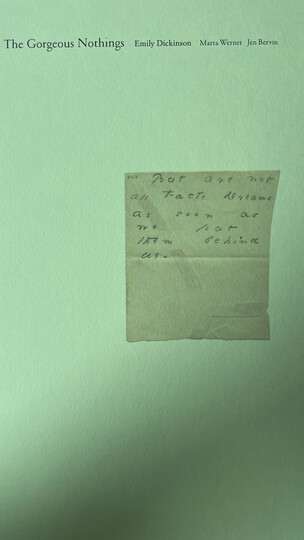 The Gorgeous Nothings Emily Dickinson Marta Werner Jen Bervin
But are not
all Facts Dreams
as soon as
we put
them behind
us.